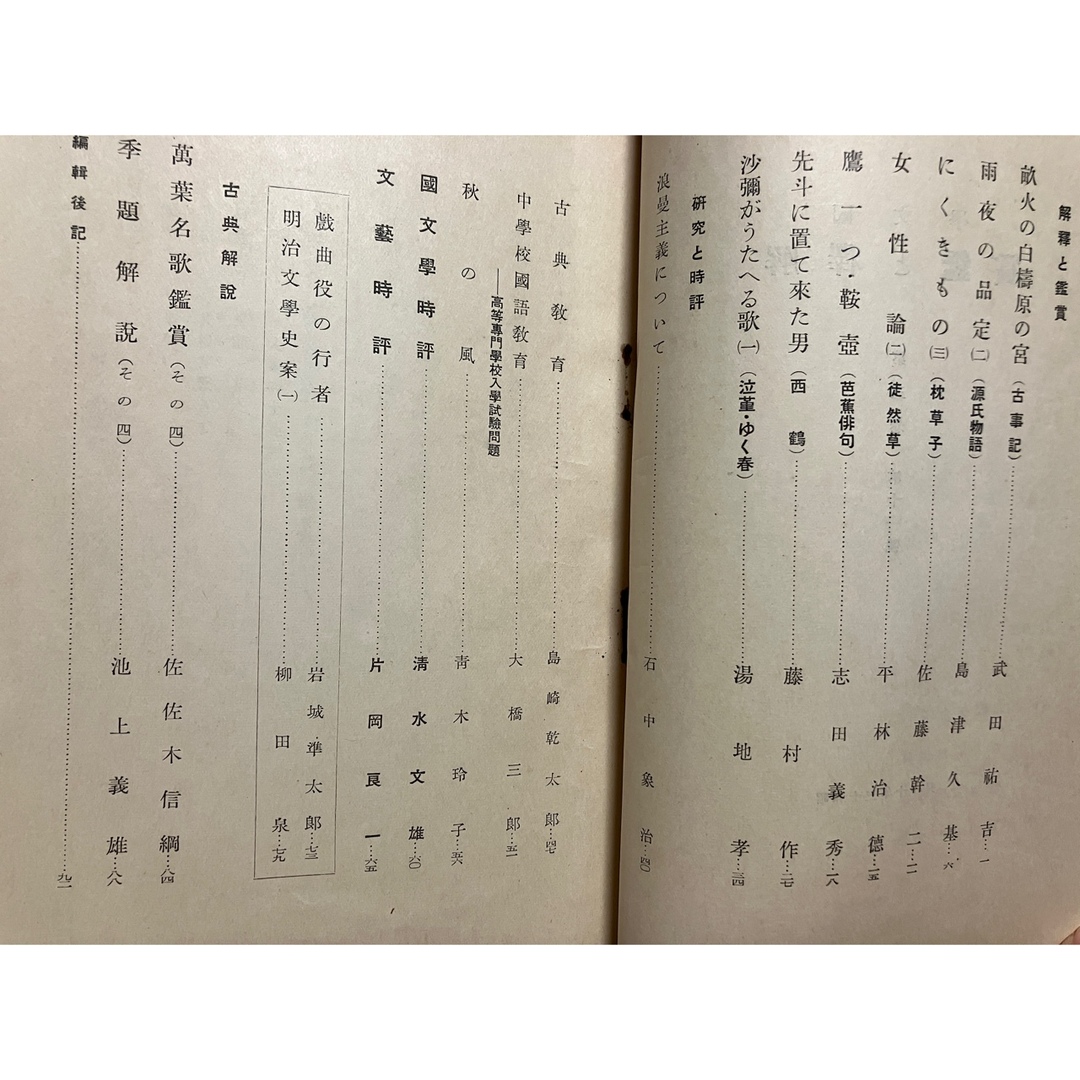 解釋と鑑賞
畝火の白檮原の宮(古事記)…………武田祐吉…一
雨夜の品定(二)(源氏物語)…………島津久基…六
にくきもの(三)(枕草子)…………佐藤幹二…一一
女性論(二)(徒然草)…………平林治德…一五
鷹一つ・鞍壺(芭蕉俳句)…………志田義秀…一八
先斗に置て來た男(西鶴)…………藤村作…二七
沙彌がうたへる歌(一)(泣菫・ゆく春)…………湯地孝…三四
硏究と時評
浪曼主義について…………石中象治…四〇
古典教育…………島崎乾太郎…四七
中學校國語敎育…………大橋三郎…五一
――高等專門學校入學試驗問題
秋の風…………靑木玲子…五六
國文學時評…………淸水文雄…六〇
文藝時評…………片岡良一…六五
戲曲役の行者…………岩城準太郎…七三
明治文學史案(一)…………柳田泉…七九
古典解說
萬葉名歌鑑賞(その四)…………佐佐木信綱…八四
季題解說(その四)…………池上義雄…八八
編輯後記…………九二